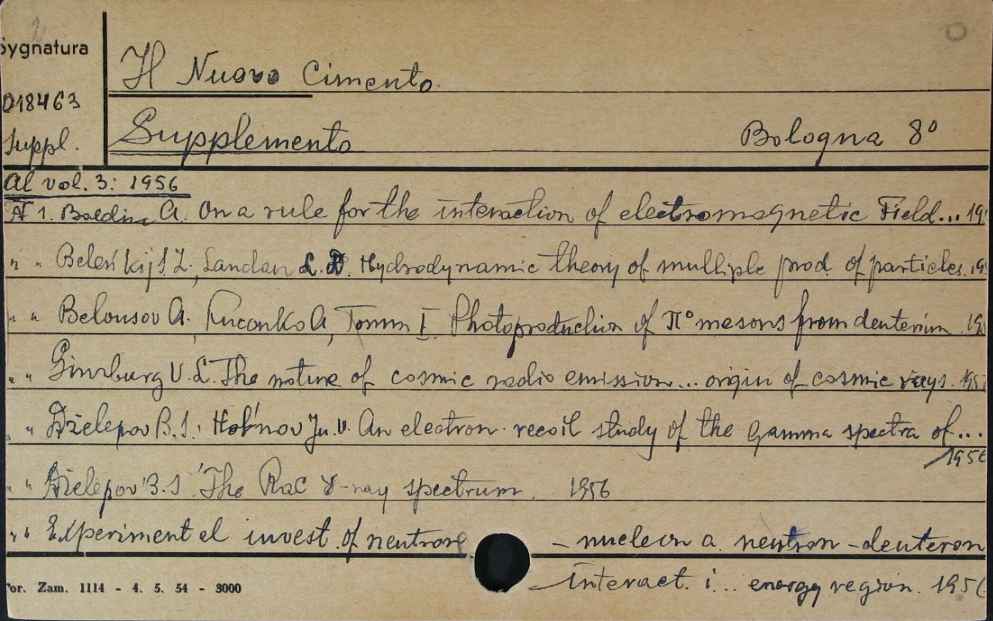 Sygnatura
Il Nuovo Cimento.
D18463
Suppl.
Supplemento Bologna 8°
Al vol. 3: 1956
N 1. Baldin A. On a rule for the interaction of electromagnetic Field... 19
" " Beleńkij S Z., Landau L. D. Hydrodynamic theory of multiple prod. of particles. 19
" " Belousov A., Rusanko A, Tamm I. Photoproduction of π° mesons from deuterium. 19
" " Ginzburg V. L. The nature of cosmic radio emission... origin of cosmic rays. 195
" " Dželepov B.S. Hol'nov Ju. V. An electron-recoil study of the gamma spectra of...
1956
" " Dželepov B.S The RaC γ-ray spectrum. 1956
" " Experimental invest. of neutron - nucleon a. neutron-deuteron
interact. i... energy region. 1956
or. Zam. 1114 - 4. 5. 54 - 3000